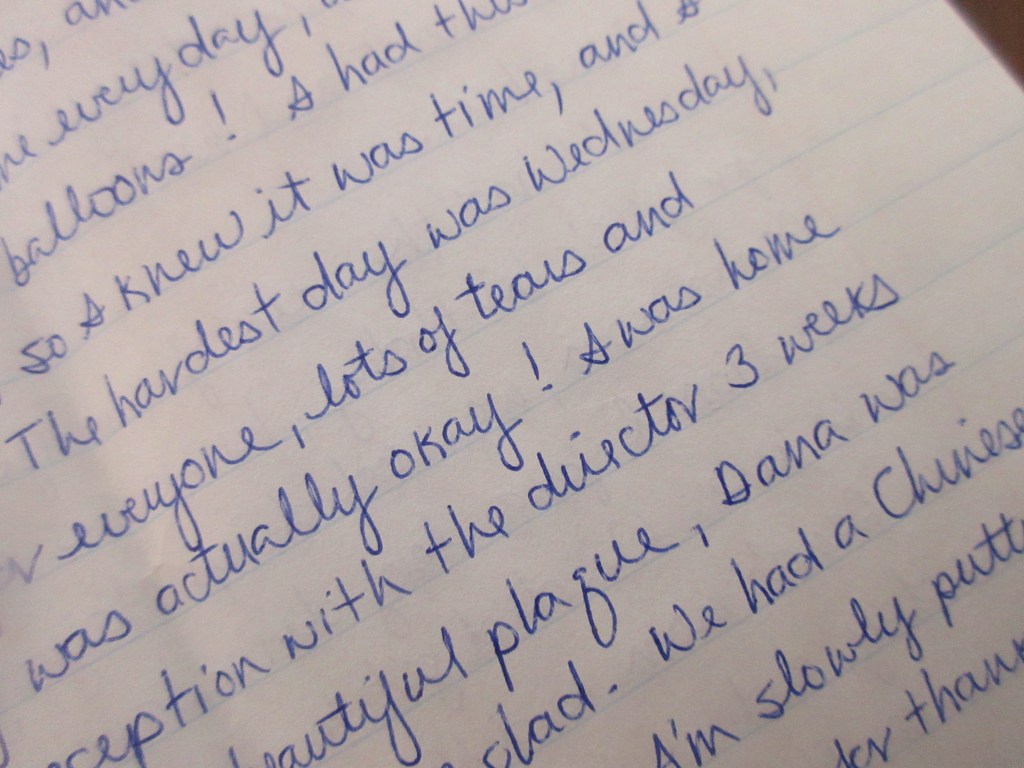 everyday,
balloons! I had this
so I knew it was time, and I
The hardest day was Wednesday,
everyone, lots of tears and
was actually okay! I was home
with the director 3 weeks
plaque, Dana was
We had a Chinese
I'm slowly